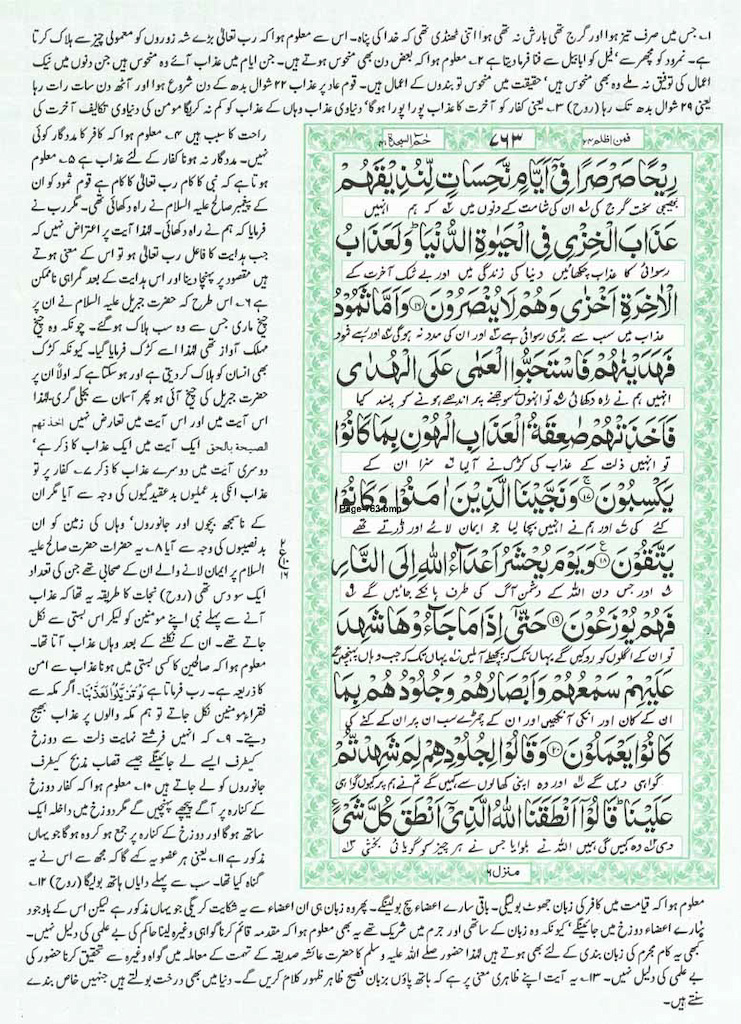 ۱؎ جس میں صرف تیز ہوا اور گرج تھی بارش نہ تھی ہوا اتنی ٹھنڈی تھی کہ خدا کی پناہ۔ اس سے معلوم ہوا کہ رب تعالٰی بڑے شہ زوروں کو معمولی چیز سے ہلاک کرتا
ہے۔ نمرود کو مچھر سے‘ فیل کو ابابیل سے فنا فرما دیتا ہے ۲؎ معلوم ہوا کہ بعض دن بھی منحوس ہوتے ہیں۔ جن ایام میں عذاب آئے وہ منحوس ہیں جن دنوں میں نیک
اعمال کی توفیق نہ ملے وہ بھی منحوس ہیں‘ حقیقت میں منحوس تو بندوں کے اعمال ہیں۔ قوم عاد پر عذاب ۲۲ شوال بدھ کے دن شروع ہوا اور آٹھ دن سات رات رہا
یعنی ۲۹ شوال بدھ تک رہا (روح) ۳؎ یعنی کفار کو آخرت کا عذاب پورا پورا ہو گا‘ دنیاوی عذاب وہاں کے عذاب کو کم نہ کریگا مومن کی دنیاوی تکالیف آخرت کی
فمن اظلم ۲۴
۷۶۳
حٰمٓ السجدۃ ۴۱
رِيْحًا صَرْصَرًا فِيْٓ اَيَّامٍ نَّحِسَاتٍ لِّنُذِيْقَهُمْ
بھیجی سخت گرج کی ان کی شامت کے دنوں میں کہ ہم انہیں
عَذَابَ الْخِزْيِ فِي الْحَيٰوةِ الدُّنْيَا ؕ وَلَعَذَابُ
رسوائی کا عذاب چکھائیں دنیا کی زندگی میں اور بے شک آخرت کے
الْاٰخِرَةِ اَخْزٰى وَهُمْ لَا يُنْصَرُوْنَ ۝۱۶ وَاَمَّا ثَمُوْدُ
عذاب میں سب سے بڑی رسوائی ہے اور ان کی مدد نہ ہوگی اور رہے ثمود
فَهَدَيْنٰهُمْ فَاسْتَحَبُّوا الْعَمٰى عَلَى الْهُدٰى
انہیں ہم نے راہ دکھائی تو انہوں نے سوجھنے پر اندھے ہونے کو پسند کیا
فَاَخَذَتْهُمْ صٰعِقَةُ الْعَذَابِ الْهُوْنِ بِمَا كَانُوْا
تو انہیں ذلت کے عذاب کی کڑک نے آلیا سزا ان کے
يَكْسِبُوْنَ ۝۱۷ وَنَجَّيْنَا الَّذِيْنَ اٰمَنُوْا وَكَانُوْا
Page-763.bmp
کئے کی اور ہم نے انہیں بچا لیا جو ایمان لائے اور ڈرتے تھے
يَتَّقُوْنَ ۝۱۸ وَيَوْمَ يُحْشَرُ اَعْدَآءُ اللّٰهِ اِلَى النَّارِ
اور جس دن اللہ کے دشمن آگ کی طرف ہانکے جائیں گے
فَهُمْ يُوْزَعُوْنَ ۝۱۹ حَتّٰٓى اِذَا مَا جَآءُوْهَا شَهِدَ
تو ان کے اگلوں کو روکیں گے یہاں تک کہ پچھلے آملیں یہاں تک کہ جب وہاں پہنچیں گے
عَلَيْهِمْ سَمْعُهُمْ وَاَبْصَارُهُمْ وَجُلُوْدُهُمْ بِمَا
ان کے کان اور انکی آنکھیں اور ان کے چمڑے سب ان پر ان کے کئے کی
كَانُوْا يَعْمَلُوْنَ ۝۲۰ وَقَالُوْا لِجُلُوْدِهِمْ لِمَ شَهِدْتُّمْ
گواہی دیں گے اور وہ اپنی کھالوں سے کہیں گے تم نے ہم پر کیوں گواہی
عَلَيْنَا ؕ قَالُوْٓا اَنْطَقَنَا اللّٰهُ الَّذِيْٓ اَنْطَقَ كُلَّ شَيْءٍ
دی وہ کہیں گی ہمیں اللہ نے بلوایا جس نے ہر چیز کو گویائی بخشی
منزل ۶
راحت کا سبب ہیں ۴؎ معلوم ہوا کہ کافر کا مددگار کوئی
نہیں۔ مددگار نہ ہونا کفار کے لئے عذاب ہے ۵؎ معلوم
ہوتا ہے کہ نبی کا کام رب تعالٰی کا کام ہے قوم ثمود کو ان
کے پیغمبر صالح علیہ السلام نے راہ دکھائی تھی۔ مگر رب نے
فرمایا کہ ہم نے راہ دکھائی۔ لہٰذا آیت پر اعتراض نہیں کہ
جب ہدایت کا فاعل رب تعالٰی ہو تو اس کے معنی ہوتے
ہیں مقصود پر پہنچا دینا اور اس ہدایت کے بعد گمراہی ناممکن
ہے ۶؎ اس طرح کہ حضرت جبریل علیہ السلام نے ان پر
چیخ ماری جس سے وہ سب ہلاک ہو گئے۔ چونکہ وہ چیخ
مہلک آواز تھی لہٰذا اسے کڑک فرمایا گیا۔ کیونکہ کڑک
بھی انسان کو ہلاک کر دیتی ہے اور ہو سکتا ہے کہ اولاً ان پر
حضرت جبریل کی چیخ آئی ہو پھر آسمان سے بجلی گری۔ لہٰذا
اس آیت میں اور اس آیت میں تعارض نہیں اخذتہم
الصیحۃ بالحق ایک آیت میں ایک عذاب کا ذکر ہے‘
دوسری آیت میں دوسرے عذاب کا ذکر ۷؎ کفار پر تو
عذاب انکی بد عملیوں بد عقیدگیوں کی وجہ سے آیا مگر ان
کے ناسمجھ بچوں اور جانوروں‘ وہاں کی زمین کو ان
بد نصیبوں کی وجہ سے آیا ۸؎ یہ حضرات حضرت صالح علیہ
السلام پر ایمان لانے والے ان کے صحابی تھے جن کی تعداد
ایک سو دس تھی (روح) نجات کا طریقہ یہ تھا کہ عذاب
آنے سے پہلے نبی اپنے مومنین کو لیکر اس بستی سے نکل
جاتے تھے۔ ان کے نکلنے کے بعد وہاں عذاب آتا تھا۔
معلوم ہوا کہ صالحین کا کسی بستی میں ہونا عذاب سے امن
کا ذریعہ ہے۔ رب فرماتا ہے لَوْ تَزَيَّلُوْا لَعَذَّبْنَا۔ اگر مکہ سے
فقراء مومنین نکل جاتے تو ہم مکہ والوں پر عذاب بھیج
دیتے۔ ۹؎ کہ انہیں فرشتے نہایت ذلت سے دوزخ
کیطرف ایسے لے جائینگے جیسے قصاب مذبح کیطرف
جانوروں کو لے جاتے ہیں ۱۰؎ معلوم ہوا کہ کفار دوزخ
کے کنارہ پر آگے پیچھے پہنچیں گے مگر دوزخ میں داخلہ ایک
ساتھ ہو گا اور دوزخ کے کنارہ پر جمع ہو کر وہ ہو گا جو یہاں
مذکور ہے ۱۱؎ یعنی ہر عضو یہ کہے گا کہ مجھ سے اس نے یہ
گناہ کیا تھا۔ سب سے پہلے دایاں ہاتھ بولیگا (روح) ۱۲؎
معلوم ہوا کہ قیامت میں کافر کی زبان جھوٹ بولیگی۔ باقی سارے اعضاء سچ بولینگے۔ پھر وہ زبان ہی ان اعضاء سے یہ شکایت کریگی جو یہاں مذکور ہے لیکن اس کے باوجود
سارے اعضاء دوزخ میں جائینگے‘ کیونکہ وہ زبان کے ساتھی اور جرم میں شریک تھے یہ بھی معلوم ہوا کہ مقدمہ قائم کرنا گواہی وغیرہ لینا حاکم کی بے علمی کی دلیل نہیں۔
کبھی یہ کام مجرم کی زبان بندی کے لئے بھی ہوتے ہیں لہٰذا حضور صلے اللہ علیہ وسلم کا حضرت عائشہ صدیقہ کے تہمت کے معاملہ میں گواہ وغیرہ سے تحقیق کرنا حضور کی
بے علمی کی دلیل نہیں۔ ۱۳؎ یہ آیت اپنے ظاہری معنی پر ہے کہ ہاتھ پاؤں بزبان فصیح ظاہر ظہور کلام کریں گے۔ دنیا میں بھی درخت بولتے ہیں جنہیں خاص بندے
سنتے ہیں۔